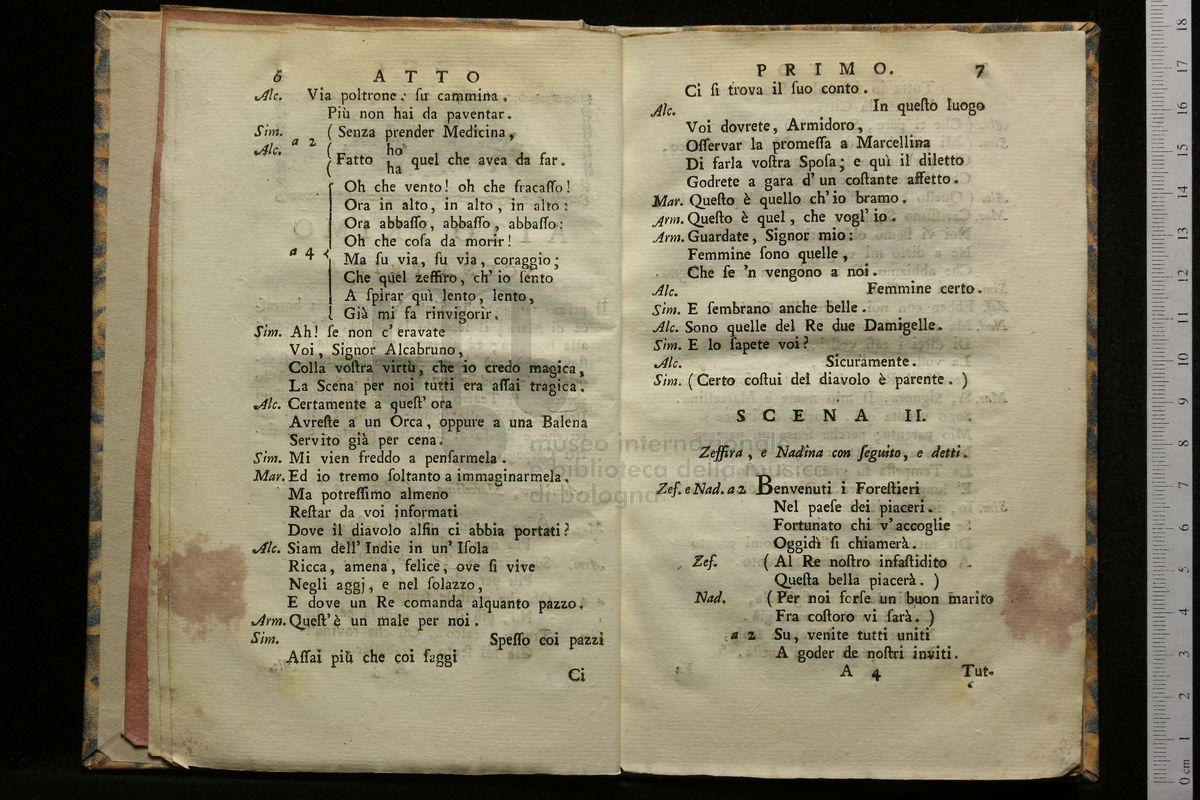 6 ATTO
Alc. Via poltrone: ſu cammina.
Più non hai da paventar.
Sim. ( Senza prender Medicina,
a 2
Alc. (
ho
( Fatto quel che avea da far.
ha
Oh che vento! oh che fracaſſo!
Ora in alto, in alto, in alto:
Ora abbaſſo, abbaſſo, abbaſſo:
Oh che coſa da morir!
a 4 {
Ma ſu via, ſu via, coraggio;
Che quel zeffiro, ch' io ſento
A ſpirar quì lento, lento,
Già mi fa rinvigorir.
Sim. Ah! ſe non c' eravate
Voi, Signor Alcabruno,
Colla voſtra virtù, che io credo magica,
La Scena per noi tutti era aſſai tragica.
Alc. Certamente a queſt' ora
Avreſte a un Orca, oppure a una Balena
Servito già per cena.
Sim. Mi vien freddo a penſarmela.
Mar. Ed io tremo ſoltanto a immaginarmela.
Ma potreſſimo almeno
Reſtar da voi informati
Dove il diavolo alfin ci abbia portati?
Alc. Siam dell' Indie in un' Iſola
Ricca, amena, felice, ove ſi vive
Negli aggj, e nel ſolazzo,
E dove un Re comanda alquanto pazzo.
Arm. Queſt' è un male per noi.
Sim. Speſſo coi pazzi
Aſſai più che coi ſaggi
Ci
PRIMO. 7
Ci ſi trova il ſuo conto.
Alc. In queſto luogo
Voi dovrete, Armidoro,
Oſſervar la promeſſa a Marcellina
Di farla voſtra Spoſa; e quì il diletto
Godrete a gara d' un coſtante affetto.
Mar. Queſto è quello ch' io bramo.
Arm. Queſto è quel, che vogl' io.
Arm. Guardate, Signor mio:
Femmine ſono quelle,
Che ſe 'n vengono a noi.
Alc. Femmine certo.
Sim. E ſembrano anche belle.
Alc. Sono quelle del Re due Damigelle.
Sim. E lo ſapete voi?
Alc. Sicuramente.
Sim. ( Certo coſtui del diavolo è parente. )
SCENA II.
Zeffira, e Nadina con ſeguito, e detti.
Zef. e Nad. a 2 Benvenuti i Foreſtieri
Nel paeſe dei piaceri.
Fortunato chi v' accoglie
Oggidì ſi chiamerà.
Zef. ( Al Re noſtro infaſtidito
Queſta bella piacerà. )
Nad. ( Per noi forſe un buon marito
Fra coſtoro vi ſarà. )
a 2 Su, venite tutti uniti
A goder de noſtri inviti.
A 4 Tut-
museo internazionale
e biblioteca della musica
di bologna
0 cm 1 2 3 4 5 6 7 8 9 10 11 12 13 14 15 16 17 18